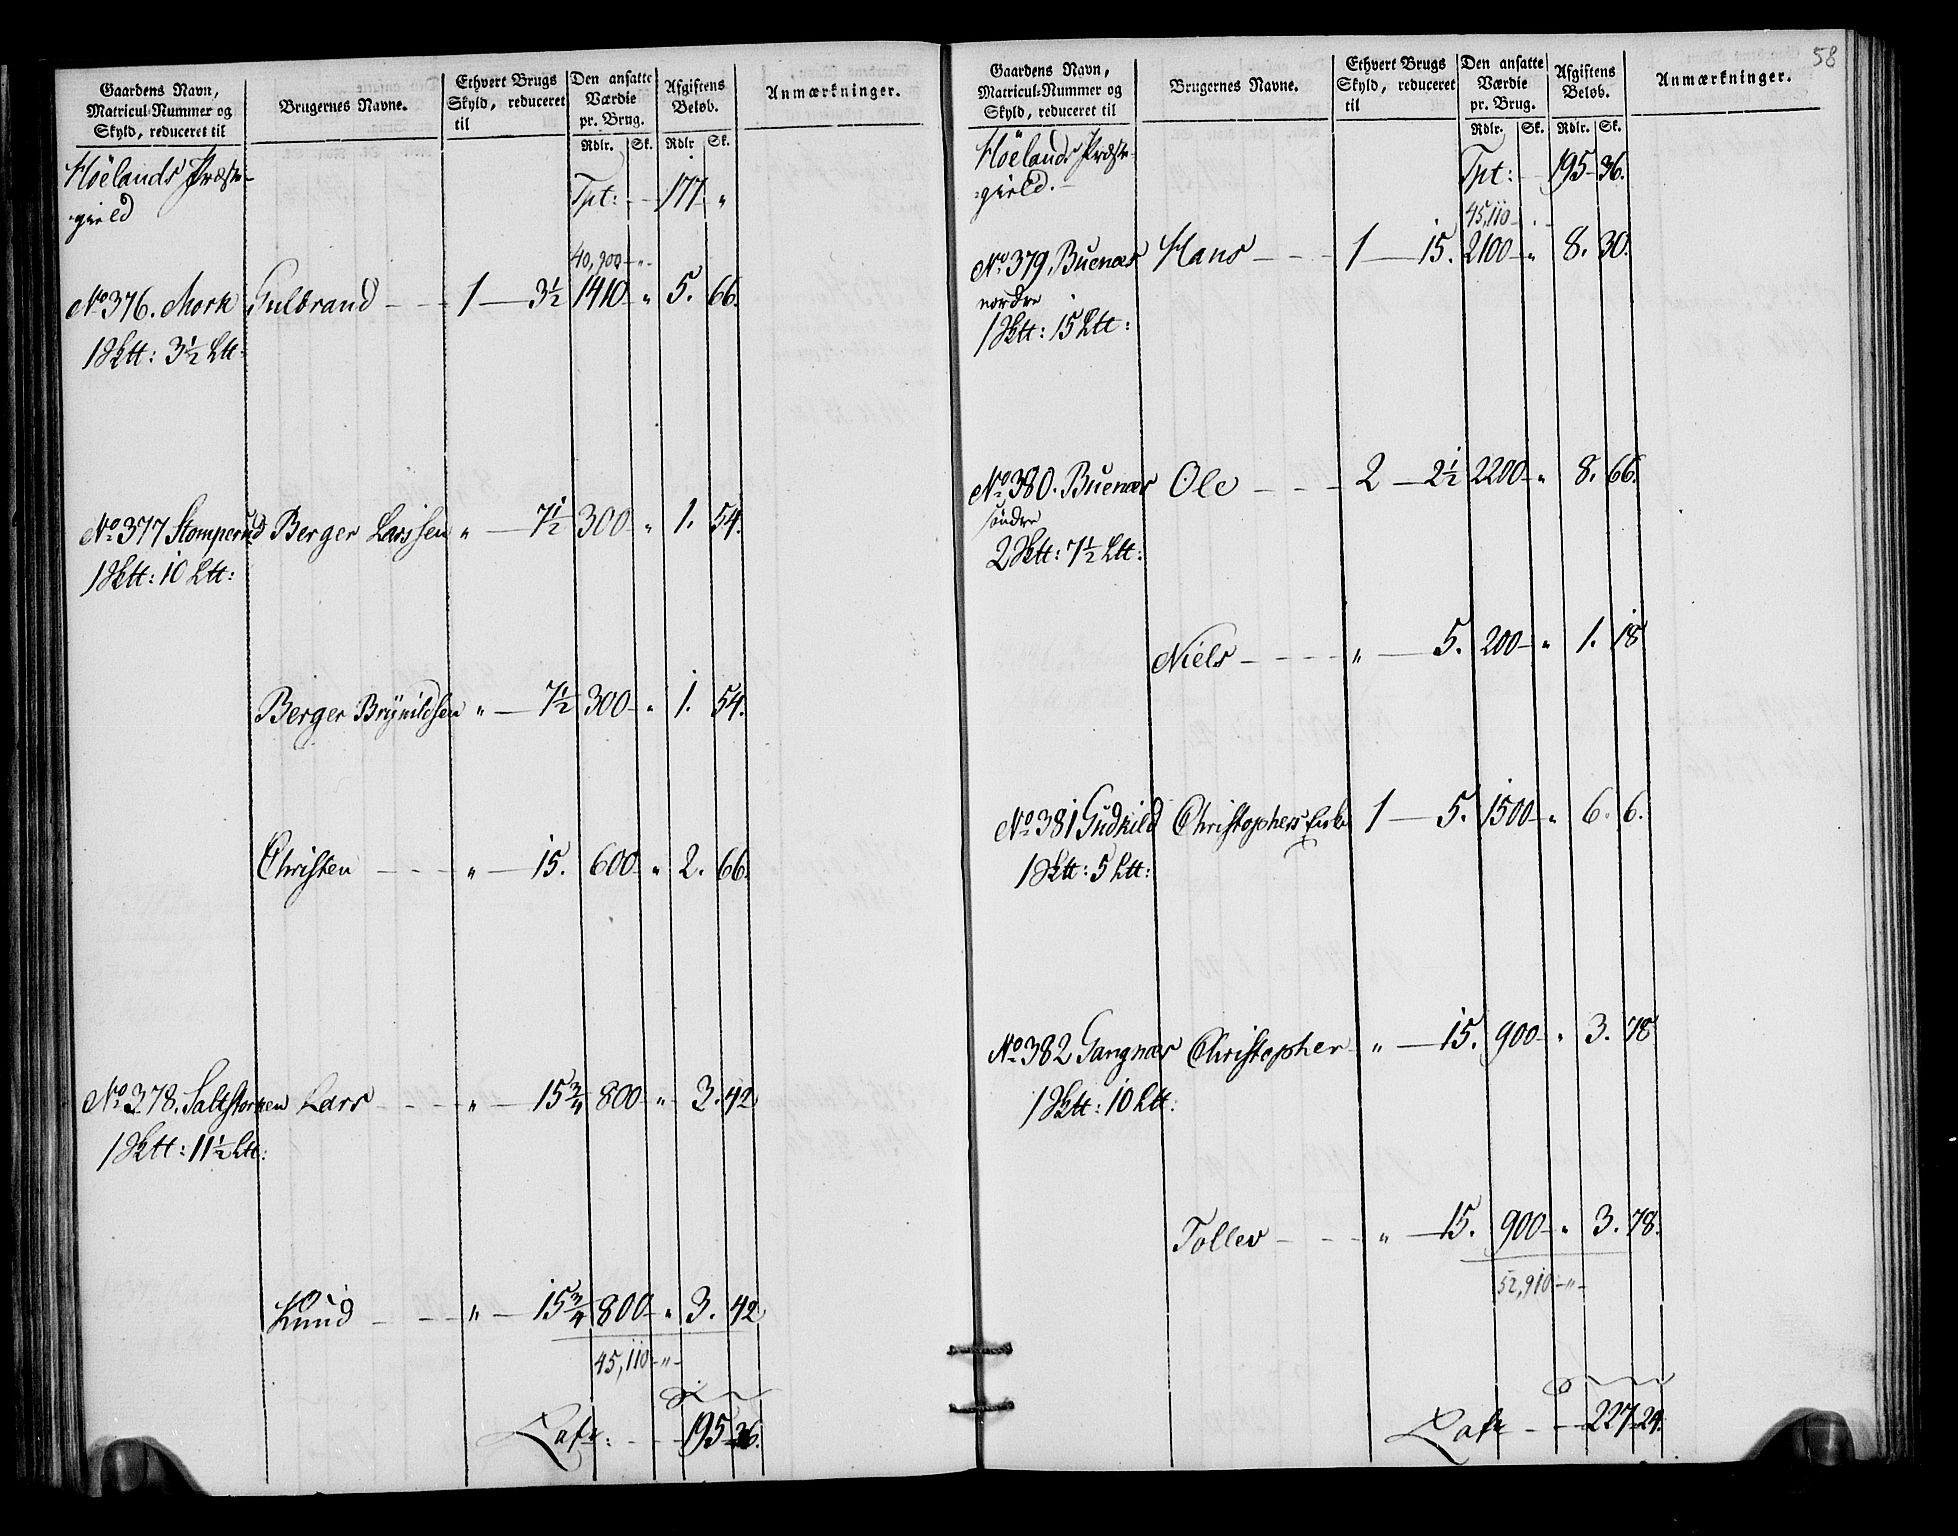 Gaardens Navn, Matricul-Nummer og Skyld, reduceret til
Brugernes Navne.
Ethvert Brugs Skyld, reduceret til
Den ansatte Værdie pr. Brug.
Afgiftens Beløb.
Anmærkninger.
Rdlr. Sk. Rdlr Sk.
Høelands Præste-
gield
Tpt: -- 177 "
40,900 - " -
No 376. Mork Gulbrand - - - 1 — 3½ 1410 " 5. 66.
1 Sktt: 3½ Ltt:
No 377 Stomperud Berger Larssen " — 7½ 300 " 1. 54.
1 Sktt: 10 Ltt:
Berger Brynildsen " — 7½ 300 " 1. 54.
Christen - - - " — 15. 600 " 2. 66.
No 378. Saltstornen Lars - - - " — 15¾ 800 " 3. 42
1 Sktt: 11½ Ltt:
Knud - - - " — 15¾ 800 " 3. 42
45,110 - " -
Lats: - - - 195 36.
58
Gaardens Navn, Matricul-Nummer og Skyld, reduceret til
Brugernes Navne.
Ethvert Brugs Skyld, reduceret til
Den ansatte Værdie pr. Brug.
Afgiftens Beløb.
Anmærkninger.
Rdlr. Sk. Rdlr. Sk.
Høelands Præste-
gield. -
Tpt: -- 195 36.
45,110 - " -
No 379. Buenæs Hans - - - 1 — 15. 2100 " 8. 30.
nordre
1 Sktt: 15 Ltt:
No 380. Buenæs Ole - - - 2 — 2½ 2200 " 8. 66.
søndre
2 Sktt: 7½ Ltt:
Niels - - - " — 5. 200 " 1. 18
No 381 Gudkild Christophers Enke 1 — 5. 1500 " 6. 6.
1 Sktt: 5 Ltt:
No 382 Gangnæs Christopher " — 15. 900 " 3. 78
1 Sktt: 10 Ltt:
Tollev - - - " — 15. 900 " 3. 78.
52,910 - " -
Lats - - - 227 24.